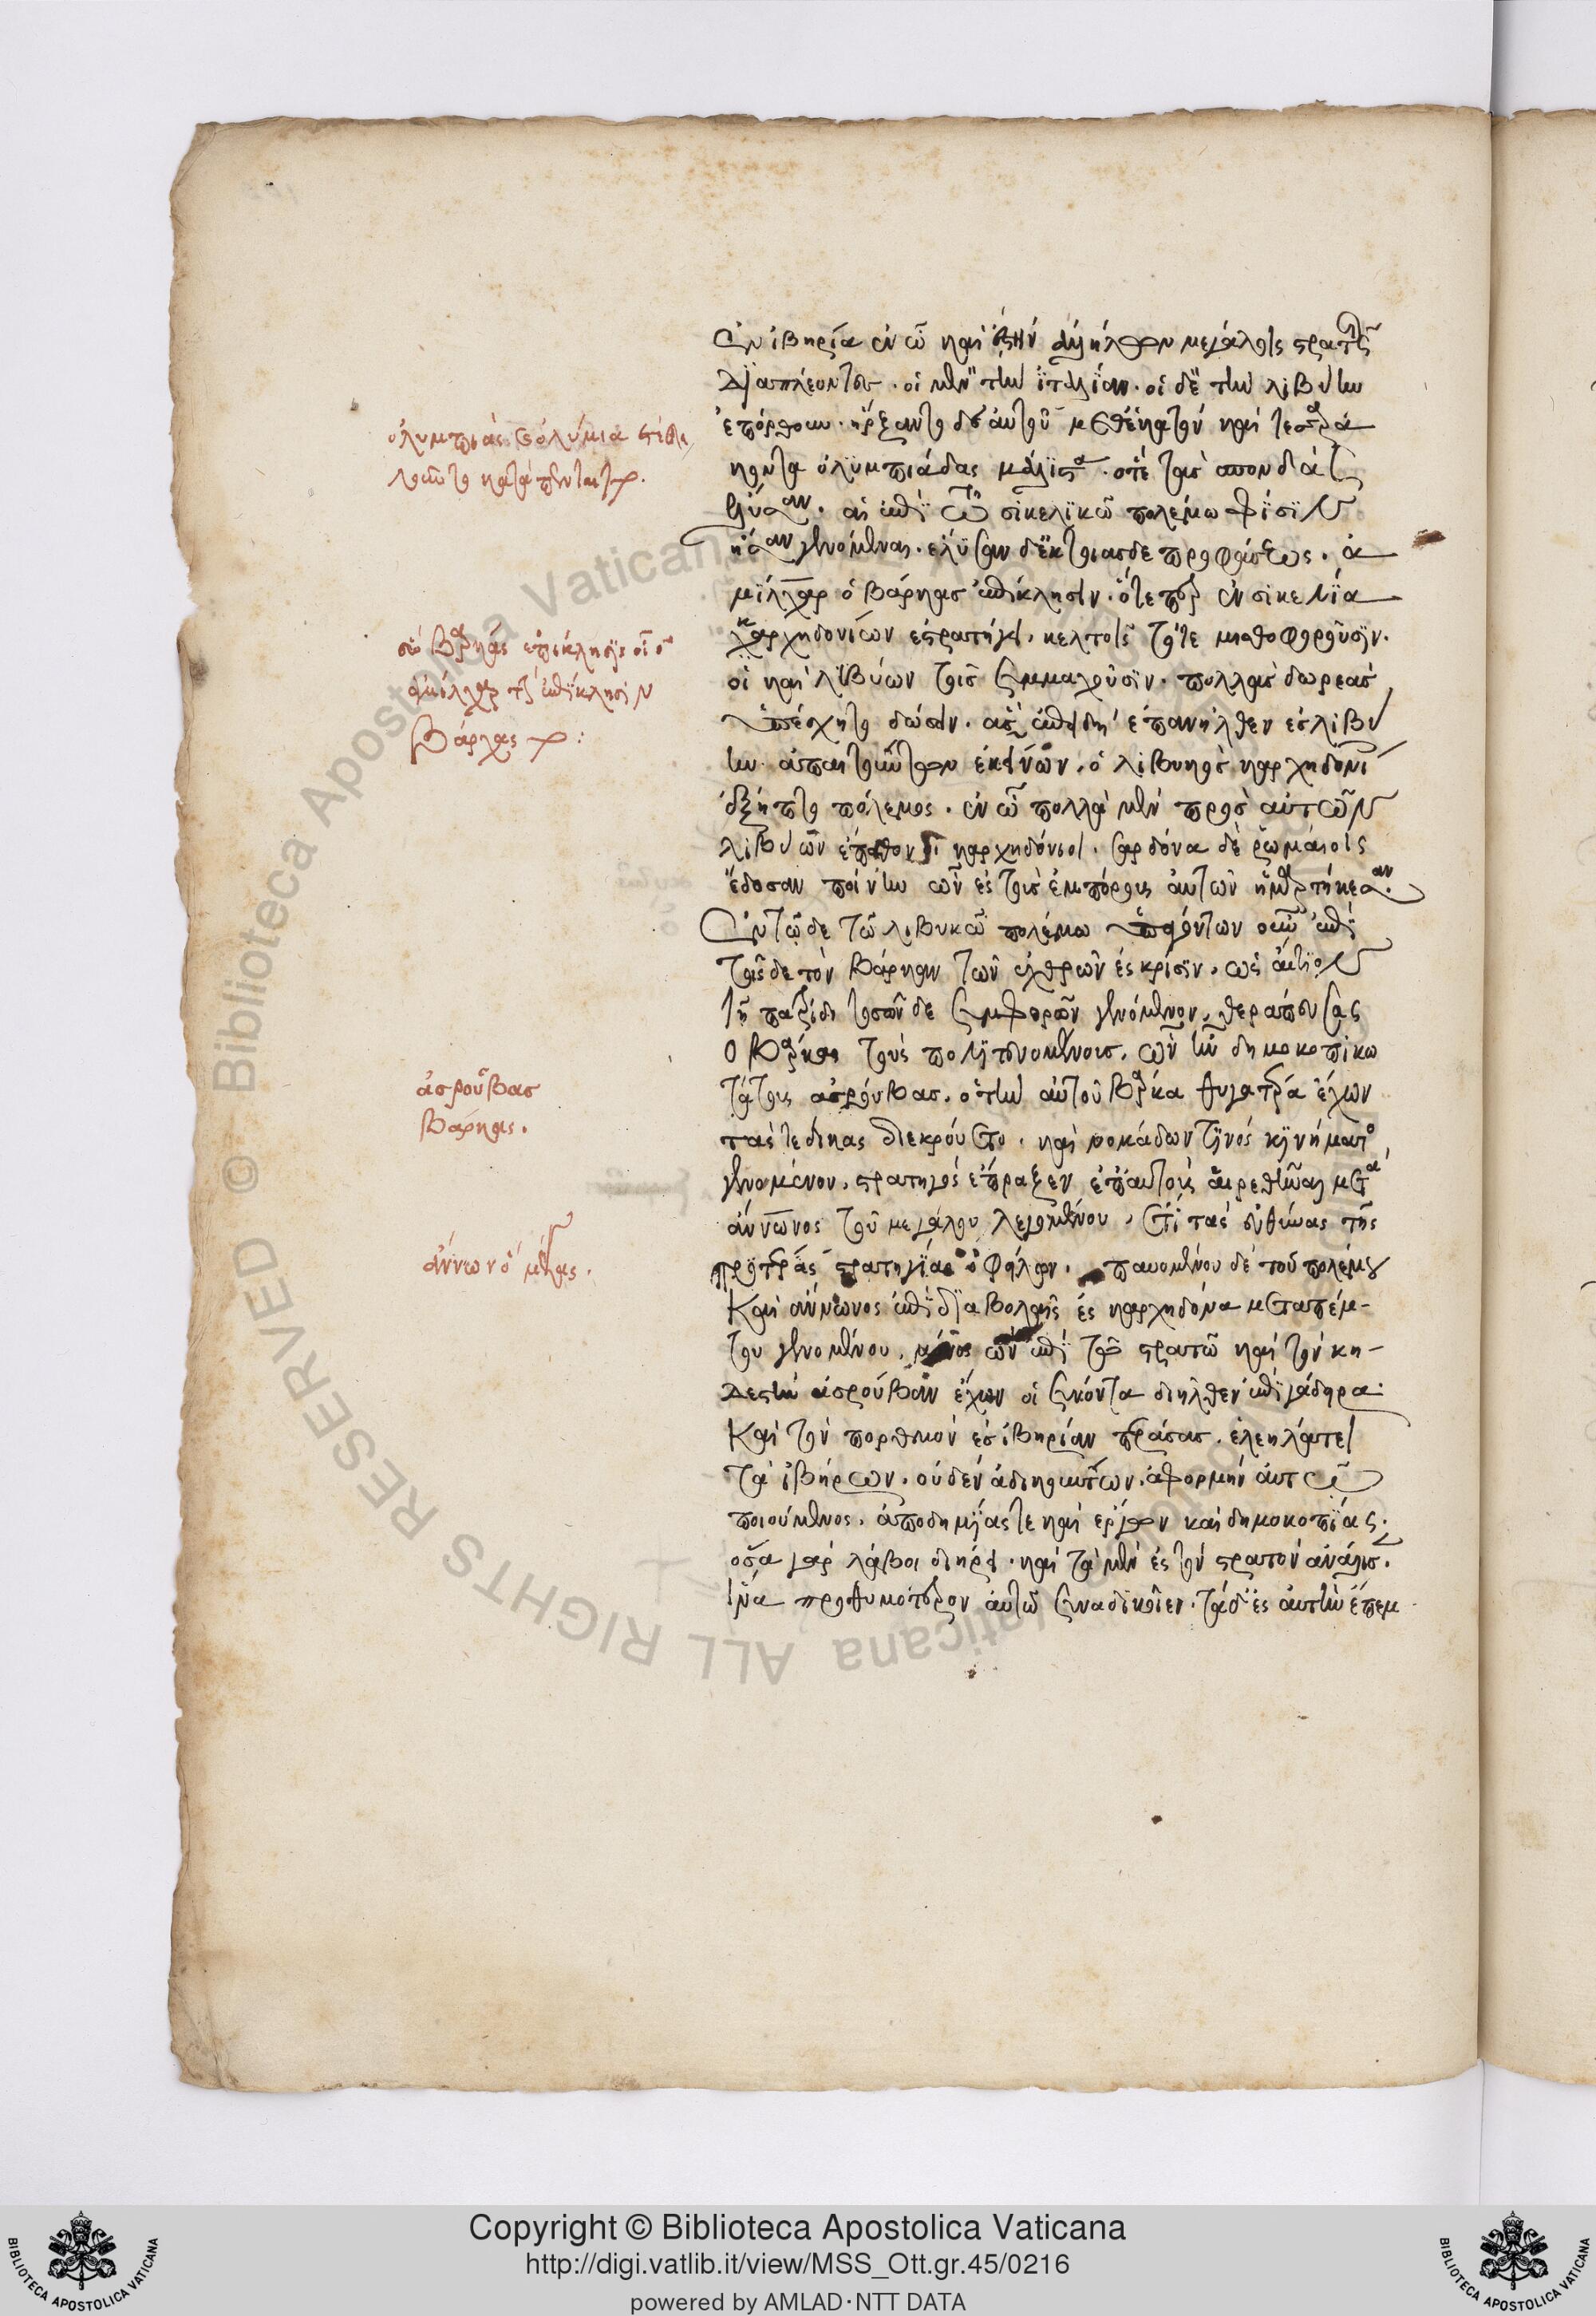 ἐν ἰβηρία ἐν ὧ καὶ ἀλλήλων μεγάλοις στρατοῖς
διαπλέοντες. οἱ μὲν τὴν ἰταλίαν. οἱ δὲ τὴν λιβύην
ἐπόρθουν. ἤρξαντο δ' αὐτοῦ μεθ' ἑκατὸν καὶ τεσσαρά
κοντα ὀλυμπιάδας μάλιστα. ὅτε τὰς σπονδὰς
ἔλυσαν. αἳ ἐπὶ τῶ σικελικῶ πολέμω σφίσιν
ἦσαν γενόμεναι. ἔλυσαν δ' ἐκ τοιασδε προφάσεως. ἀ
μίλχαρ ὁ βάρκας ἐπίκλησιν. ὅτε περ ἐν σικελία
καρχηδονίων ἐστρατήγει. κελτοῖς τότε μισθοφοροῦσιν.
οἱ καὶ λιβύων τοῖς συμμαχοῦσιν. πολλὰς δωρεὰς
ὑπέσχητο δώσειν. ἃς ἐπειδὴ ἐπανῆλθεν ἐς λιβύ
ην ἀπαιτούντων ἐκείνων. ὁ λιβυκὸς καρχηδονί
ἐξῆπτο πόλεμος. ἐν ὧ πολλὰ μὲν πρὸς αὐτῶν
λιβύων ἔπαθον οἱ καρχηδόνιοι. σαρδόνα δὲ ῥωμαίοις
ἔδοσαν ποινὴν ὧν ἐς τοὺς ἐμπόρους αὐτῶν ἡμαρτήκεσαν.
ἐν τῶδε τῶ λιβυκῶ πολέμω ὑπαγόντων οὖν ἐπὶ
τοῖσδε τὸν βάρκαν τῶν ἐχθρῶν ἐς κρίσιν. ὡς αἴτιον
τῆ πατρίδι τοσῶνδε συμφορῶν γενόμενον, θεραπεύσας
ὁ βάρκας τοὺς πολιτευομένους. ὧν ἦν δημοκοπικω
τάτους ἀσρούβας. ὁ τὴν αὐτοῦ βάρκα θυγατέρα ἔχων
τάς τε δίκας διεκρούετο. καὶ νομάδων τινὸς κινήματος
γενομένου. στρατηγὸς ἔπραξεν ἐπ' αὐτοὺς αἱρεθῆναι μετὰ
ἄννωνος τοῦ μεγάλου λεγομένου. ἔτι τὰς εὐθύνας τῆς
προτέρας στρατηγίας ὀφείλων. παυομένου δὲ τοῦ πολέμου
καὶ ἄννωνος ἐπὶ διαβολαῖς ἐς καρχηδόνα μεταπέμ-
του γενομένου. μόνος ὢν ἐπὶ τῶ στρατῶ καὶ τὸν κη-
δεστὴν ἀσρούβαν ἔχων οἱ συνόντα διῆλθεν ἐπὶ γάδηρα.
καὶ τὸν πορθμὸν ἐς ἰβηρίαν περάσας. ἐλεηλάτει
τὰ ἰβήρων. οὐδὲν ἀδικούντων. ἀφορμὴν αὑτῶ
ποιούμενος. ἀποδημίας τε καὶ ἔργων καὶ δημοκοπίας.
ὅσα γὰρ λάβοι διήρει. καὶ τὰ μὲν ἐς τὸν στρατὸν ἀνάλισ.
ἵνα προθυμότερον αὐτῶ συναδικοῖεν. τὰ δ' ἐς αὐτὴν ἔπεμ
βάρχας
ἀσρούβας
βάρκας.
ἄννων ὁ μέγας.
Copyright © Biblioteca Apostolica Vaticana
http://digi.vatlib.it/view/MSS_Ott.gr.45/0216
powered by AMLAD·NTT DATA
BIBLIOTECA APOSTOLICA VATICANA
BIBLIOTECA APOSTOLICA VATICANA
ALL RIGHTS RESERVED © Biblioteca Apostolica Vaticana